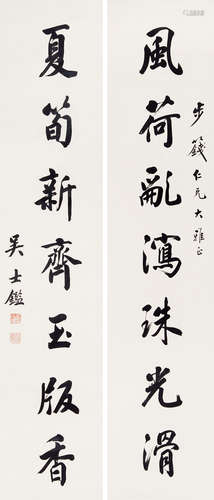 風荷亂瀉珠光滑
步籛仁兄大雅正
夏筍新齊玉版香
吳士鑑